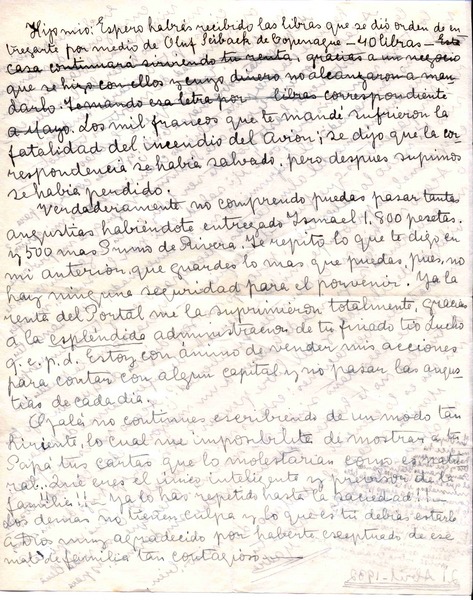 Hijo mio: Espero habrás recibido las libras que se dió orden de en
tregarte por medio de Oluf Seiback de Copenague - 40 libras - Esta
casa continuará sirviendo tu renta, gracias a un negocio
que se hizo con ellos y cuyo dinero no alcanzaron a man
darlo. Tomando esa letra por libras correspondiente
a Mayo. Los mil francos que te mandé sufrieron la
fatalidad del incendio del Avion; se dijo que la co
respondencia se habia salvado, pero despues supimos
se habia perdido.
Verdaderamente no comprendo puedas pasar tantas
angustias habiéndote entregado Ismael 1.800 pesetas.
y 500 mas Primo de Rivera. Te repito lo que te digo en
mi anterior, que guardes lo mas que puedas, pues, no
hay ninguna seguridad para el porvenir. Ya la
renta del Portal me la suprimieron totalmente, gracias
a la espléndida administracion de tu finado tio Lucho
q. e. p. d. Estoy con animo de vender mis acciones
para contar con algun capital y no pasar las angus
tias de cada dia.
Ojalá no continues escribiendo de un modo tan
hiriente, lo cual me imposibilita de mostrar a tu
Papá tus cartas que lo molestarian como es natu
ral. Que eres el único inteligente y previsor de la
familia!! - Ya lo has repetido hasta la saciedad!! -
Los demas no tienen culpa y lo que es tu debias estarle
a Dios muy agradecido por haberte exceptuado de ese
mal de familia tan contagioso